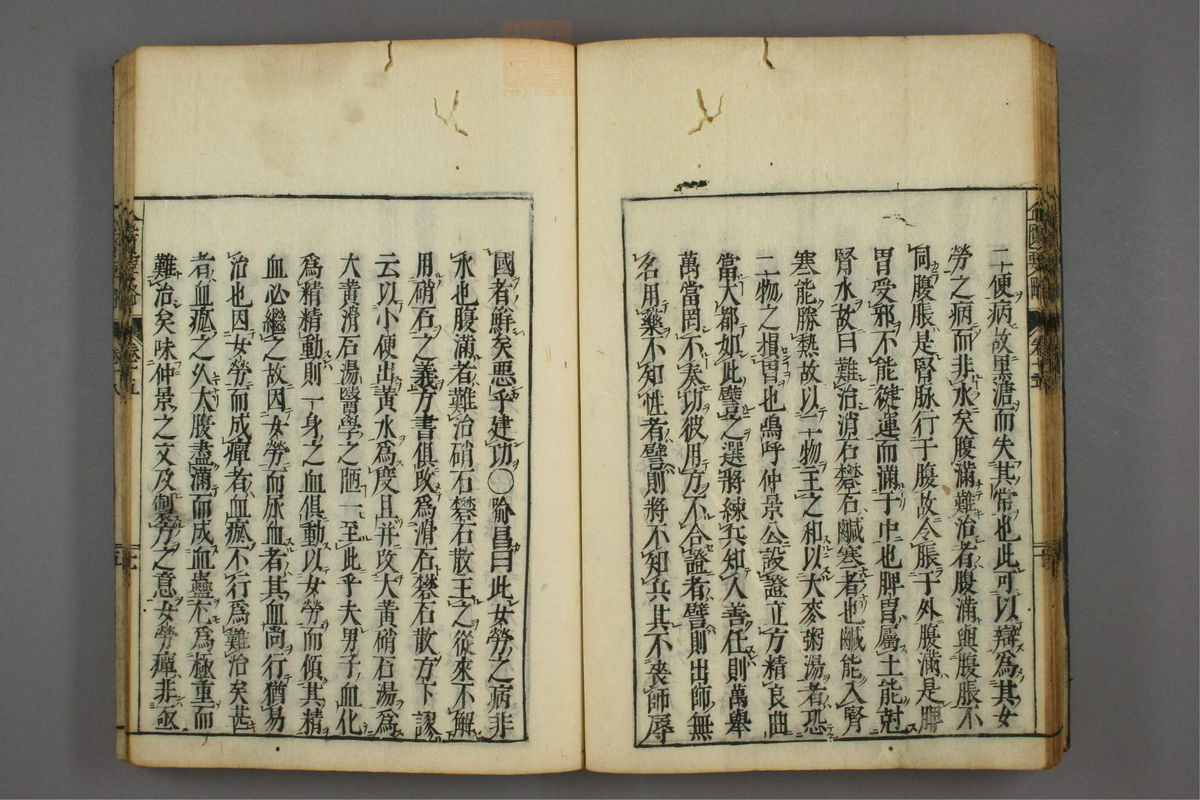 二便病故黒溏而失其常也此可以辯為其女
勞之病而非水矣腹滿難治者腹滿與腹脹不
同腹脹是腎脉行于腹故令脹于外腹滿是脾
胃受邪不能健運而滿于中也脾胃屬土能尅
腎水故曰難治消石礬石鹹寒者也鹹能入腎
寒能勝熱故以二物主之和以大麥粥湯者恐
二物之損胃也嗚呼仲景公設證立方精良曲
當大都如此譬之選將練兵知人善任則萬舉
萬當罔不奏功彼用方不合證者譬則出師無
名用藥不知性者譬則將不知兵其不喪師辱
國者鮮矣悪乎建功〇喻昌曰此女勞之病非
水也腹滿者難治硝石礬石散主之從來不解
用硝石之義方書俱改為滑石礬石散方下謬
云以小便出黃水為度且并改大黃硝石湯為
大黃滑石湯醫學之陋一至此乎夫男子血化
為精精動則一身之血俱動以女勞而傾其精
血必繼之故因女勞而尿血者其血尚行猶易
治也因女勞而成癉者血瘀不行為難治矣甚
者血瘀之久大腹盡滿而成血蠱尤為極重而
難治矣味仲景之文及制方之意女勞癉非亟